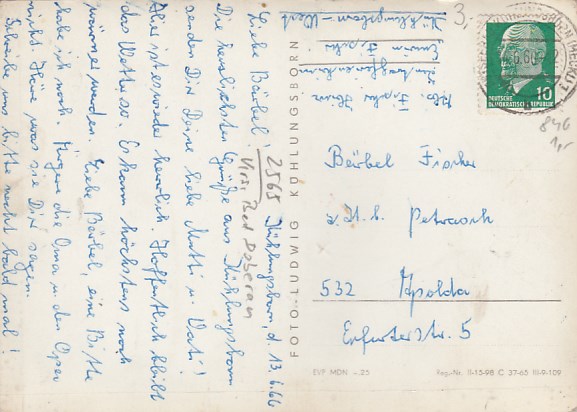 2565 Kühlungsborn, d. 13.6.66
Krs. Bad Doberan
Liebe Bärbel!
Die herzlichsten Grüße aus Kühlungsborn
senden Dir Deine liebe Mutti u. Vati!
Hier ist es wieder herrlich. Hoffentlich bleibt
das Wetter so. Es kann höchstens noch
wärmer werden. Liebe Bärbel, eine Bitte
habe ich noch. Ärgere die Oma u. den Opa
nicht. Höre was sie Dir sagen.
Schreibe uns bitte recht bald mal!
FOTO-LUDWIG KÜHLUNGSBORN
Kühlungsborn-West
Erwin Fischer
Abs. Fischer
3,-
DEUTSCHE
DEMOKRATISCHE REPUBLIK
10
846
1,-
Bärbel Fischer
z. Zt. b. Petrasch
532 Apolda
Erfurter Str. 5
EVP MDN -.25
Reg.-Nr. II-15-98 C 37-65 III-9-109